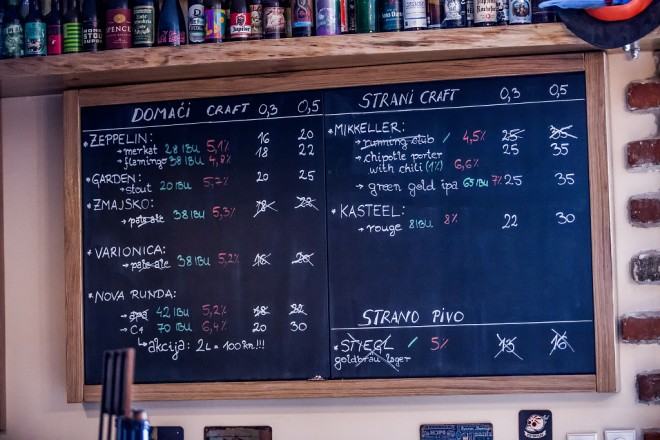 DOMAĆI CRAFT 0,3 0,5
*ZEPPELIN:
→merkat 28 IBU 5,1% 16 20
→flamingo 38 IBU 4,8% 18 22
*GARDEN: 20 25
→stout 20 IBU 5,7%
*ZMAJSKO:
→pale ale 38 IBU 5,3%
*VARIONICA:
→pale ale 38 IBU 5,2%
*NOVA RUNDA:
→APA 42 IBU 5,2%
→C4 70 IBU 6,4% 20 30
↳akcija: 2L = 100kn!!!
STRANI CRAFT 0,3 0,5
*MIKKELLER:
→running stub / 4,5% 25 35
→chipotle porter 25 35
with chili (1%) 6,6%
→green gold ipa 65 IBU 7% 25 35
*KASTEEL:
→rouge 8 IBU 8% 22 30
STRANO PIVO
*STIEGL / 5% 13 16
goldbräu lager